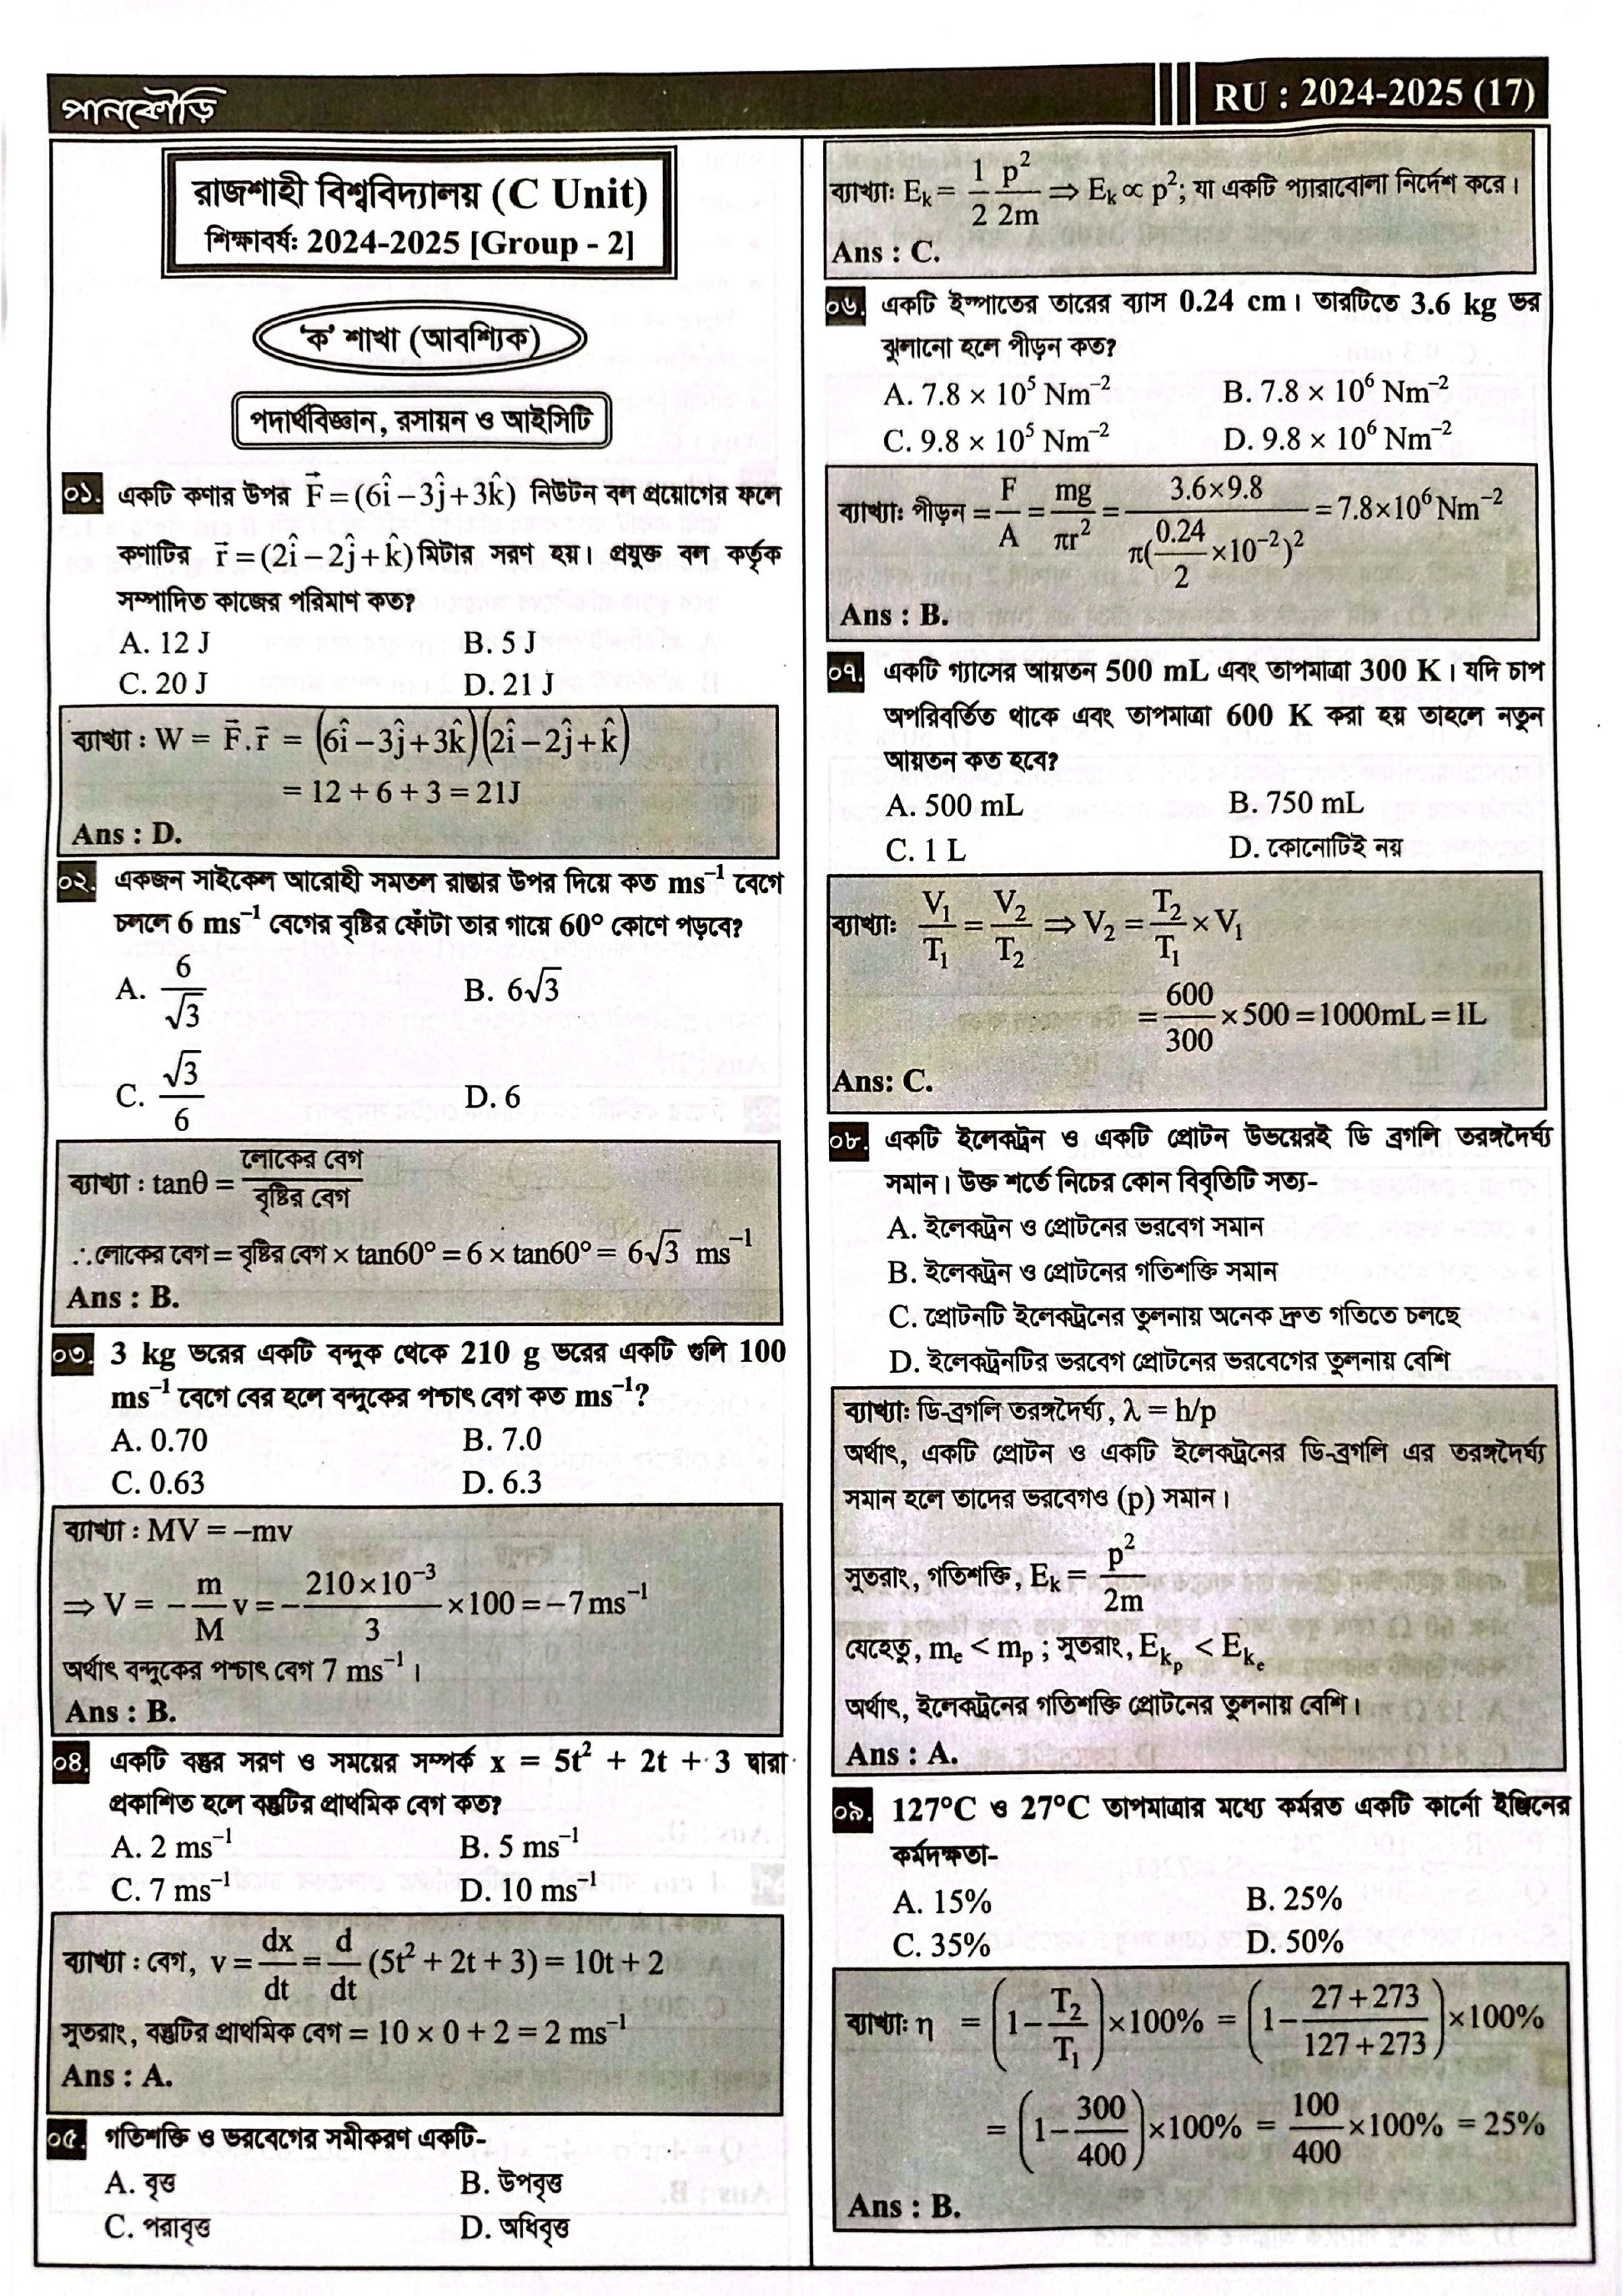 পানকৌড়ি
RU : 2024-2025 (17)
রাজশাহী বিশ্ববিদ্যালয় (C Unit)
শিক্ষাবর্ষঃ 2024-2025 [Group - 2]
'ক' শাখা (আবশ্যিক)
পদার্থবিজ্ঞান, রসায়ন ও আইসিটি
০১. একটি কণার উপর F⃗ = (6î – 3ĵ + 3k̂) নিউটন বল প্রয়োগের ফলে
কণাটির r⃗ = (2î – 2ĵ + k̂) মিটার সরণ হয়। প্রযুক্ত বল কর্তৃক
সম্পাদিত কাজের পরিমাণ কত?
A. 12 J B. 5 J
C. 20 J D. 21 J
ব্যাখ্যা : W = F⃗.r⃗ = (6î – 3ĵ + 3k̂)(2î – 2ĵ + k̂)
= 12 + 6 + 3 = 21J
Ans : D.
০২. একজন সাইকেল আরোহী সমতল রাস্তার উপর দিয়ে কত ms⁻¹ বেগে
চললে 6 ms⁻¹ বেগের বৃষ্টির ফোঁটা তার গায়ে 60° কোণে পড়বে?
A. 6/√3 B. 6√3
C. √3/6 D. 6
ব্যাখ্যা : tanθ = লোকের বেগ/বৃষ্টির বেগ
∴লোকের বেগ = বৃষ্টির বেগ × tan60° = 6 × tan60° = 6√3 ms⁻¹
Ans : B.
০৩. 3 kg ভরের একটি বন্দুক থেকে 210 g ভরের একটি গুলি 100
ms⁻¹ বেগে বের হলে বন্দুকের পশ্চাৎ বেগ কত ms⁻¹?
A. 0.70 B. 7.0
C. 0.63 D. 6.3
ব্যাখ্যা : MV = –mv
⇒ V = –m/M v = –210×10⁻³/3 ×100 = –7 ms⁻¹
অর্থাৎ বন্দুকের পশ্চাৎ বেগ 7 ms⁻¹ ।
Ans : B.
০৪. একটি বস্তুর সরণ ও সময়ের সম্পর্ক x = 5t² + 2t + 3 দ্বারা
প্রকাশিত হলে বস্তুটির প্রাথমিক বেগ কত?
A. 2 ms⁻¹ B. 5 ms⁻¹
C. 7 ms⁻¹ D. 10 ms⁻¹
ব্যাখ্যা : বেগ, v = dx/dt = d/dt (5t² + 2t + 3) = 10t + 2
সুতরাং, বস্তুটির প্রাথমিক বেগ = 10 × 0 + 2 = 2 ms⁻¹
Ans : A.
০৫. গতিশক্তি ও ভরবেগের সমীকরণ একটি-
A. বৃত্ত B. উপবৃত্ত
C. পরাবৃত্ত D. অধিবৃত্ত
ব্যাখ্যাঃ Eₖ = 1/2 p²/2m ⇒ Eₖ ∝ p²; যা একটি প্যারাবোলা নির্দেশ করে।
Ans : C.
০৬. একটি ইস্পাতের তারের ব্যাস 0.24 cm। তারটিতে 3.6 kg ভর
ঝুলানো হলে পীড়ন কত?
A. 7.8 × 10⁵ Nm⁻² B. 7.8 × 10⁶ Nm⁻²
C. 9.8 × 10⁵ Nm⁻² D. 9.8 × 10⁶ Nm⁻²
ব্যাখ্যাঃ পীড়ন = F/A = mg/πr² = 3.6×9.8/π(0.24/2 ×10⁻²)² = 7.8×10⁶ Nm⁻²
Ans : B.
০৭. একটি গ্যাসের আয়তন 500 mL এবং তাপমাত্রা 300 K। যদি চাপ
অপরিবর্তিত থাকে এবং তাপমাত্রা 600 K করা হয় তাহলে নতুন
আয়তন কত হবে?
A. 500 mL B. 750 mL
C. 1 L D. কোনোটিই নয়
ব্যাখ্যাঃ V₁/T₁ = V₂/T₂ ⇒ V₂ = T₂/T₁ × V₁
= 600/300 × 500 = 1000mL = 1L
Ans: C.
০৮. একটি ইলেকট্রন ও একটি প্রোটন উভয়েরই ডি ব্রগলি তরঙ্গদৈর্ঘ্য
সমান। উক্ত শর্তে নিচের কোন বিবৃতিটি সত্য-
A. ইলেকট্রন ও প্রোটনের ভরবেগ সমান
B. ইলেকট্রন ও প্রোটনের গতিশক্তি সমান
C. প্রোটনটি ইলেকট্রনের তুলনায় অনেক দ্রুত গতিতে চলছে
D. ইলেকট্রনটির ভরবেগ প্রোটনের ভরবেগের তুলনায় বেশি
ব্যাখ্যাঃ ডি-ব্রগলি তরঙ্গদৈর্ঘ্য, λ = h/p
অর্থাৎ, একটি প্রোটন ও একটি ইলেকট্রনের ডি-ব্রগলি এর তরঙ্গদৈর্ঘ্য
সমান হলে তাদের ভরবেগও (p) সমান।
সুতরাং, গতিশক্তি, Eₖ = p²/2m
যেহেতু, mₑ < mₚ ; সুতরাং, Eₖₚ < Eₖₑ
অর্থাৎ, ইলেকট্রনের গতিশক্তি প্রোটনের তুলনায় বেশি।
Ans : A.
০৯. 127°C ও 27°C তাপমাত্রার মধ্যে কর্মরত একটি কার্নো ইঞ্জিনের
কর্মদক্ষতা-
A. 15% B. 25%
C. 35% D. 50%
ব্যাখ্যাঃ η = (1 – T₂/T₁) ×100% = (1 – 27+273/127+273) ×100%
= (1 – 300/400) ×100% = 100/400 ×100% = 25%
Ans : B.